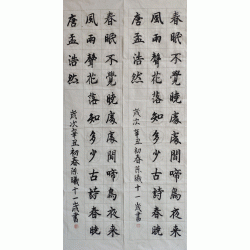 春眠不覺曉處處聞啼鳥夜来
風雨聲花落知多少古詩春曉
唐孟浩然
歲次辛丑初春陈曦十一歲書
春眠不覺曉處處聞啼鳥夜来
風雨聲花落知多少古詩春曉
唐孟浩然
歲次辛丑初春陈曦十一歲書